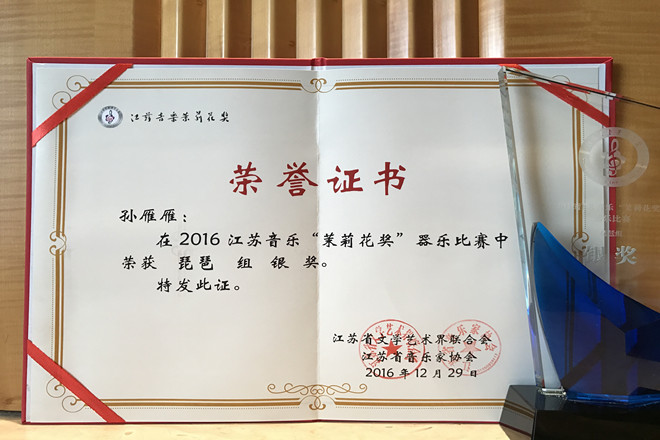 江苏音乐茉莉花奖
荣誉证书
孙雁雁：
在 2016 江苏音乐“茉莉花奖”器乐比赛中
荣获 琵琶 组 银 奖。
特发此证。
江苏省文学艺术界联合会
江苏省音乐家协会
2016 年 12 月 29 日
银奖